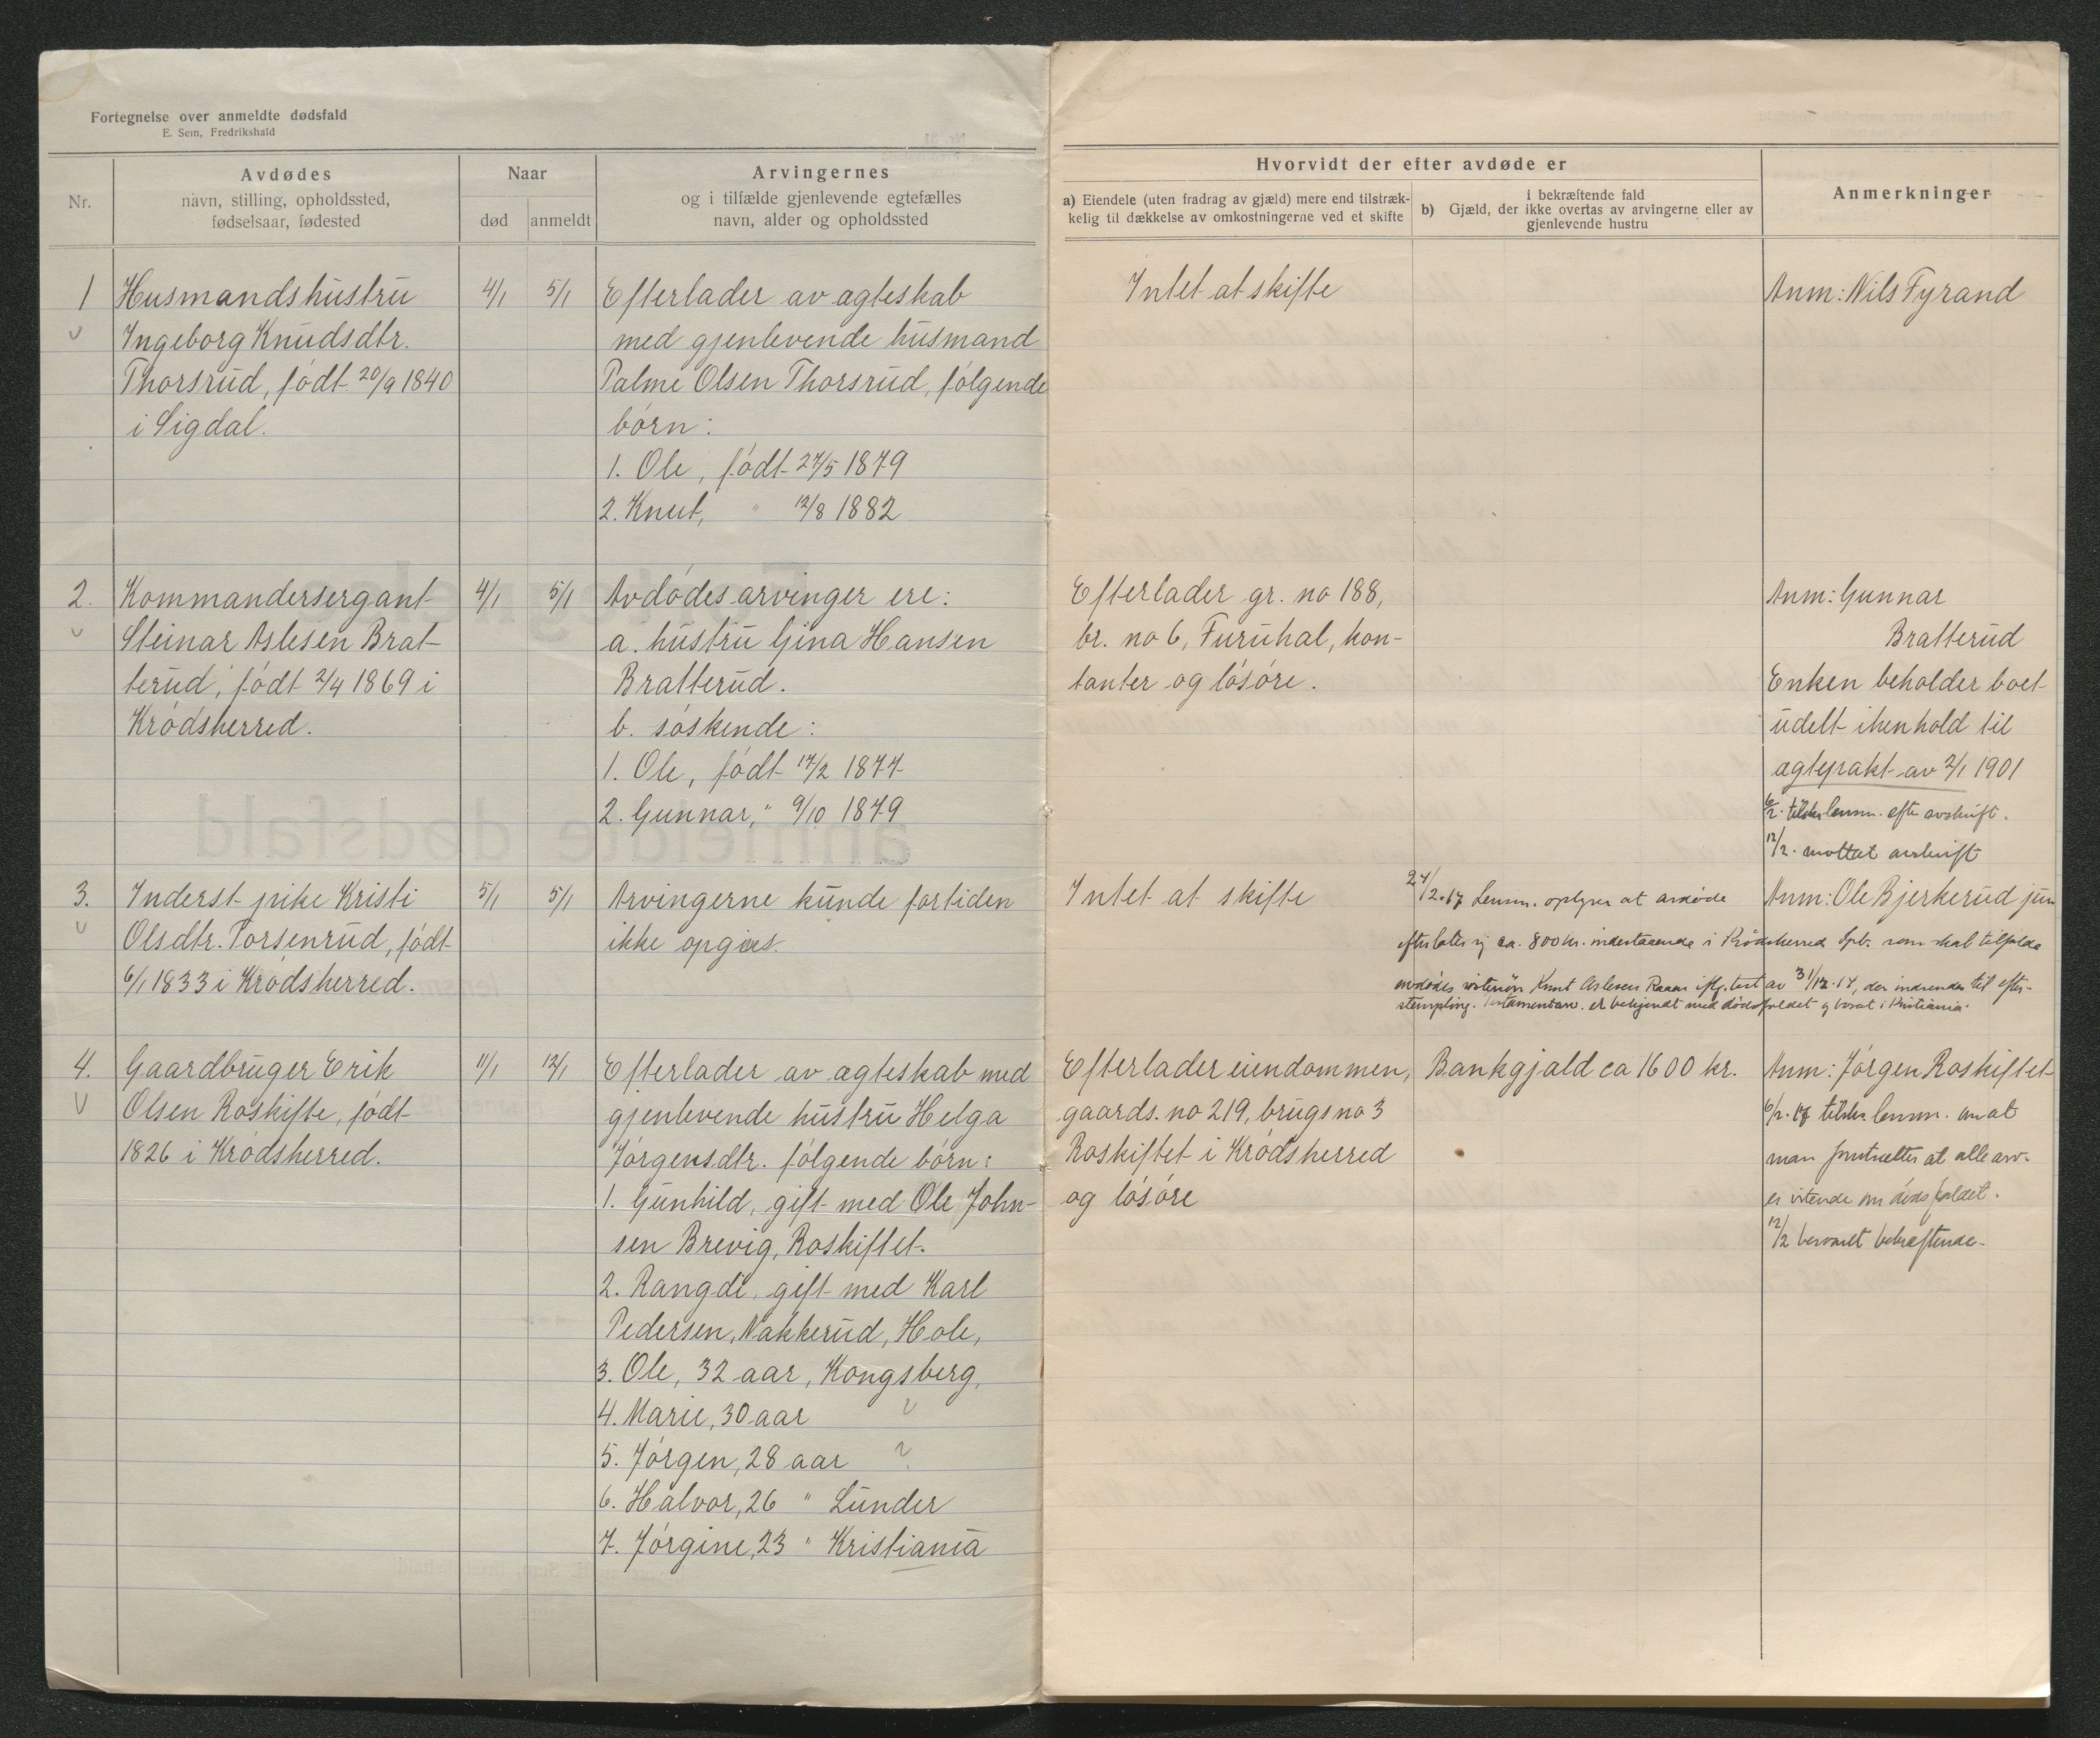 Fortegnelse over anmeldte dødsfald
E. Sem, Fredrikshald
Nr.
Avdødes
navn, stilling, opholdssted,
fødselsaar, fødested
Naar
død
anmeldt
Arvingernes
og i tilfælde gjenlevende egtefælles
navn, alder og opholdssted
Hvorvidt der efter avdøde er
a) Eiendele (uten fradrag av gjæld) mere end tilstræk-
kelig til dækkelse av omkostningerne ved et skifte
i bekræftende fald
b) Gjæld, der ikke overtas av arvingerne eller av
gjenlevende hustru
Anmerkninger
1
Husmandshustru
Ingeborg Knudsdtr.
Thorsrud, født 20/9 1840
i Sigdal.
4/1
5/1
Efterlader av ægteskab
med gjenlevende husmand
Palme Olsen Thorsrud, følgende
børn:
1. Ole, født 27/5 1879
2. Knut, " 12/8 1882
Intet at skifte
Anm: Nils Fyrand
2.
Kommandersergant
Steinar Aslesen Brat-
terud, født 2/4 1869 i
Krødsherred.
4/1
5/1
Avdødes arvinger ere:
a. hustru Gina Hansen
Bratterud.
b. søskende:
1. Ole, født 17/2 1877
2. Gunnar, " 9/10 1879
Efterlader gr. no 188,
br. no 6, Furuhal, kon-
tanter og løsøre.
Anm: Gunnar
Bratterud
Enken beholder boet
udelt ihenhold til
ægtepakt av 2/1 1901
6/2. tilskr. lensm. efter avskrift.
12/2. mottat avskrift
3.
Inderst pike Kristi
Olsdtr. Torsenrud, født
6/1 1833 i Krødsherred.
5/1
5/1
Arvingerne kunde fortiden
ikke opgives.
Intet at skifte
24/12-17 Lensm. oplyser at avdøde
Anm: Ole Bjerkerud jun
efterlater sig ca. 800 kr. indestaaende i Krødsherred Spb. som skal tilfalde
avdødes søstersøn Knut Aslesen Raaen iflg. test av 31/12-17, der indsendes til efter-
stempling. Testamentarv. er bekjendt med dødsfaldet og bosat i Kristiania.
4.
Gaardbruger Erik
Olsen Roskifte, født
1826 i Krødsherred.
11/1
12/1
Efterlader av ægteskab med
gjenlevende hustru Helga
Jørgensdtr. følgende børn:
1. Gunhild, gift med Ole John-
sen Brevig, Roskiftet.
2. Rangdi, gift med Karl
Pedersen, Nakkerud, Hole,
3. Ole, 32 aar, Kongsberg,
4. Marie, 30 aar
5. Jørgen, 28 aar ?
6. Halvor, 26 " Lunder
7. Jørgine, 23 " Kristiania
Efterlader eiendommen,
gaards. no 219, brugs no 3
Roskiftet i Krødsherred
og løsøre
Bankgjæld ca 1600 kr.
Anm: Jørgen Roskiftet
6/2-17 tilskr. lensm. om at
man forutsetter at alle arv.
er vitende om dødsfaldet.
12/2 besvaret bekræftende.